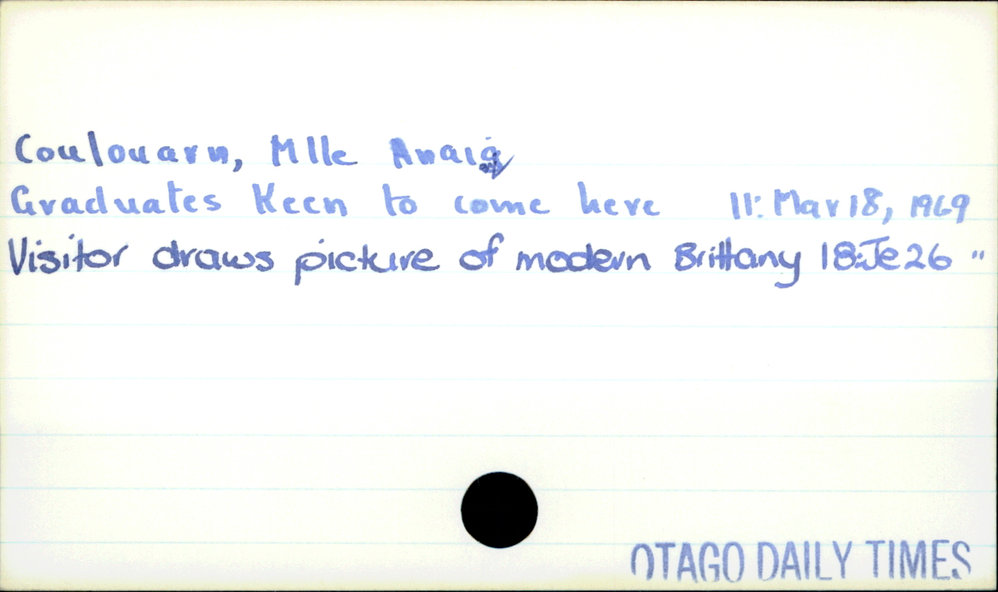 Coulouarn, Mlle Anaig
Graduates Keen to come here 11: Mar 18, 1969
Visitor draws picture of modern Brittany 18:Je 26 "
OTAGO DAILY TIMES